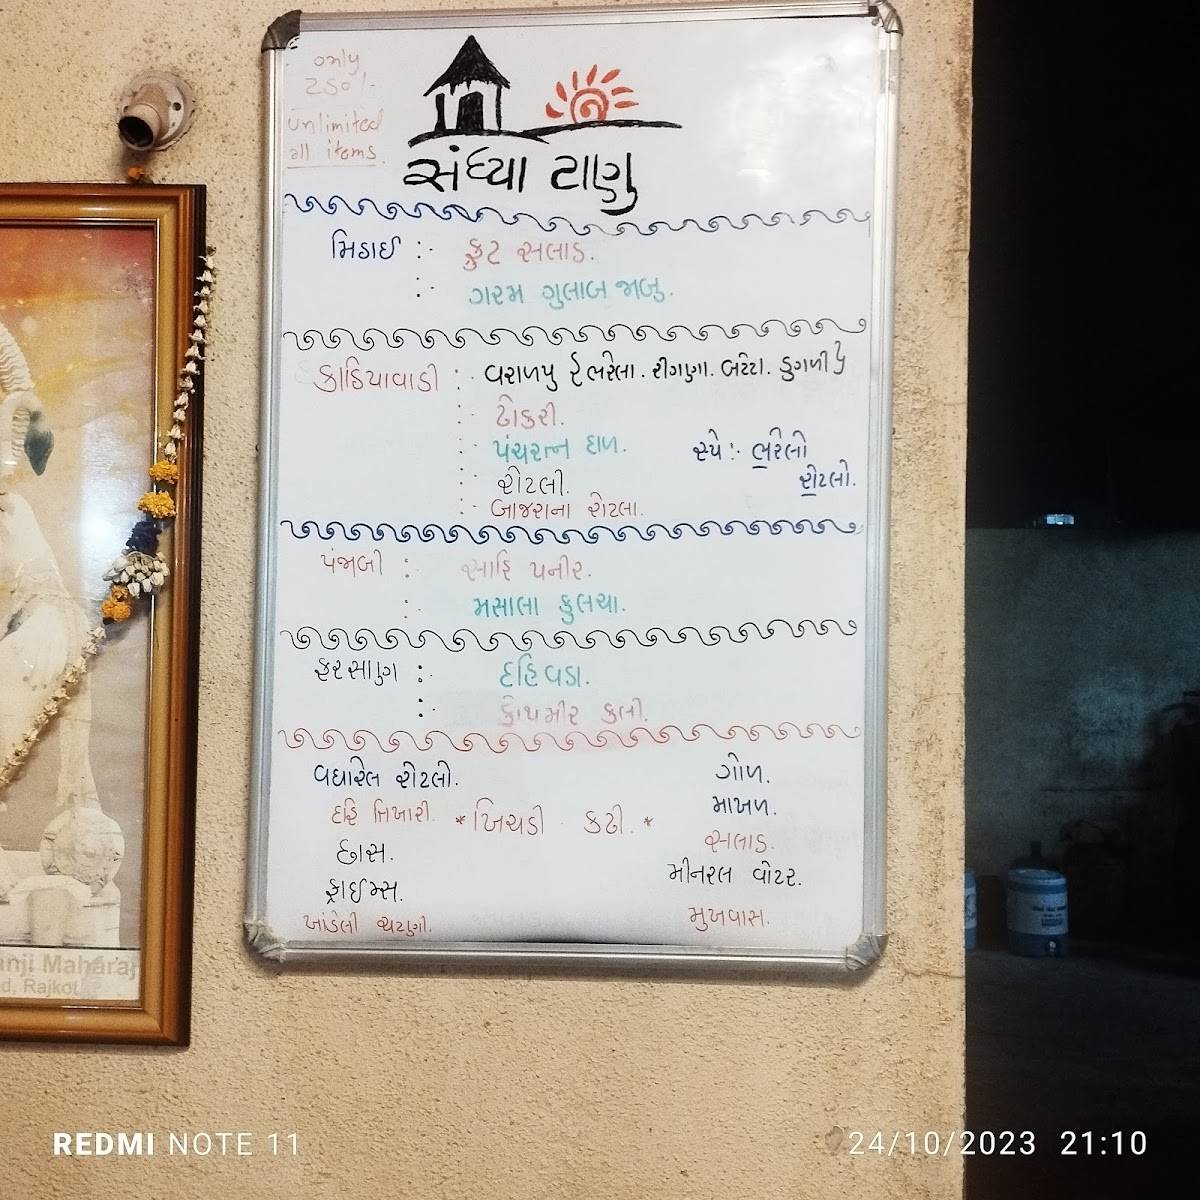 only
250/-
unlimited
all items.
સંધ્યા ટાણુ
મિઠાઈ :- ફ્રુટ સલાડ.
:- ગરમ ગુલાબ જાબુ.
કાઠિયાવાડી :- વરાળપુ ભરેલા. રીંગણા. બટેટા. ડુગળી
:- ટોકરી.
:- પંચરત્ન દાળ. સ્પે :- ભરેલો
:- રોટલી. રોટલો.
:- બાજરાના રોટલા.
પંજાબી : સાહિ પનીર.
: મસાલા કુલચા.
ફરસાણ :- દહિવડા.
:- કોથમીર કલી.
વઘારેલ રોટલો. ગોળ.
દહિ તિખારી. *ખિચડી કઢી.* માખળ.
છાસ. સલાડ.
ફ્રાઈમ્સ. મીનરલ વોટર.
ખાંડેલી ચટણી. મુખવાસ.
anji Maharaj
d, Rajkot
REDMI NOTE 11
24/10/2023 21:10